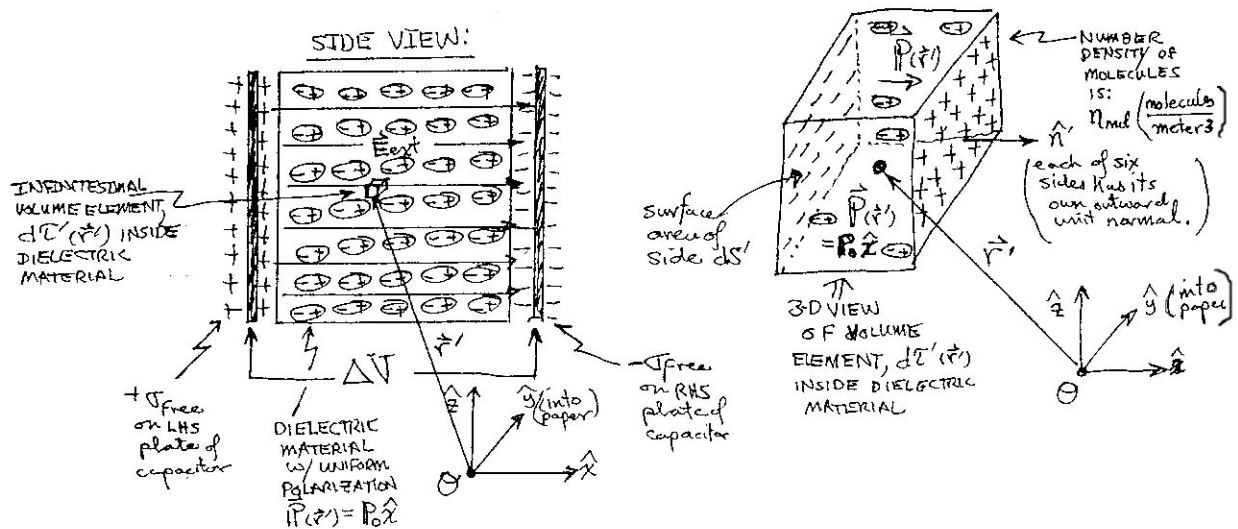 SIDE VIEW:
E⃗ext
INFINITESIMAL
VOLUME ELEMENT,
dτ'(r⃗') INSIDE
DIELECTRIC
MATERIAL
r⃗'
ΔV
+σfree
on LHS
plate of
capacitor
DIELECTRIC
MATERIAL
w/ UNIFORM
POLARIZATION
P⃗(r⃗') = P₀x̂
ẑ
ŷ (into
paper)
x̂
ϑ
-σfree
on RHS
plate of
capacitor
P⃗(r⃗')
NUMBER
DENSITY OF
MOLECULES
IS:
nmol (molecules
meter3)
n̂'
(each of six
sides has its
own outward
unit normal.)
surface
area of
side dS'
P⃗(r⃗')
= P₀x̂
r⃗'
3-D VIEW
OF VOLUME
ELEMENT, dτ'(r⃗')
INSIDE DIELECTRIC
MATERIAL
ẑ
ŷ (into
paper)
x̂
ϑ